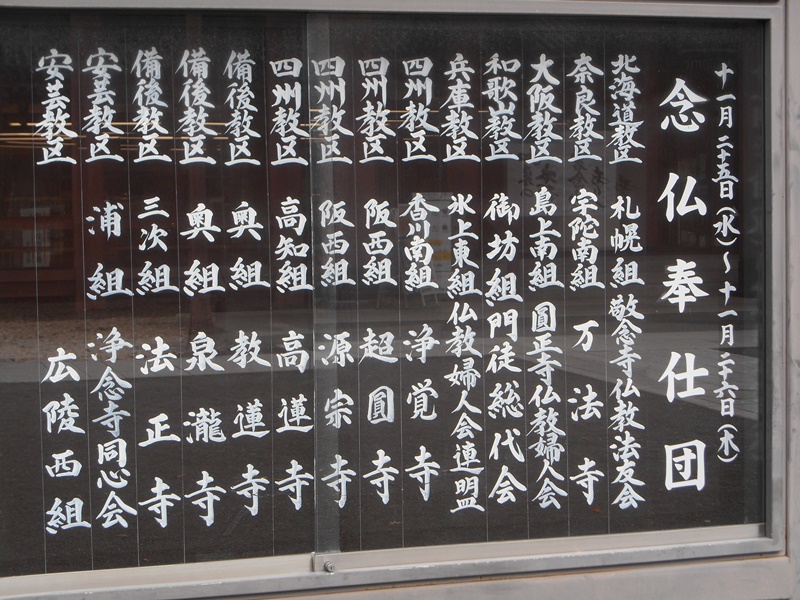 十一月二十五日(水)～十一月二十六日(木)
念仏奉仕団
北海道教区 札幌組 敬念寺仏教法友会
奈良教区 宇陀南組 万法寺
大阪教区 島上南組 圓正寺仏教婦人会
和歌山教区 御坊組 門徒総代会
兵庫教区 氷上東組 仏教婦人会連盟
四州教区 香川南組 浄覚寺
四州教区 阪西組 超圓寺
四州教区 阪西組 源宗寺
四州教区 高知組 高蓮寺
備後教区 奥組 教蓮寺
備後教区 奥組 泉瀧寺
備後教区 三次組 法正寺
安芸教区 浦組 浄念寺同心会
安芸教区 広陵西組